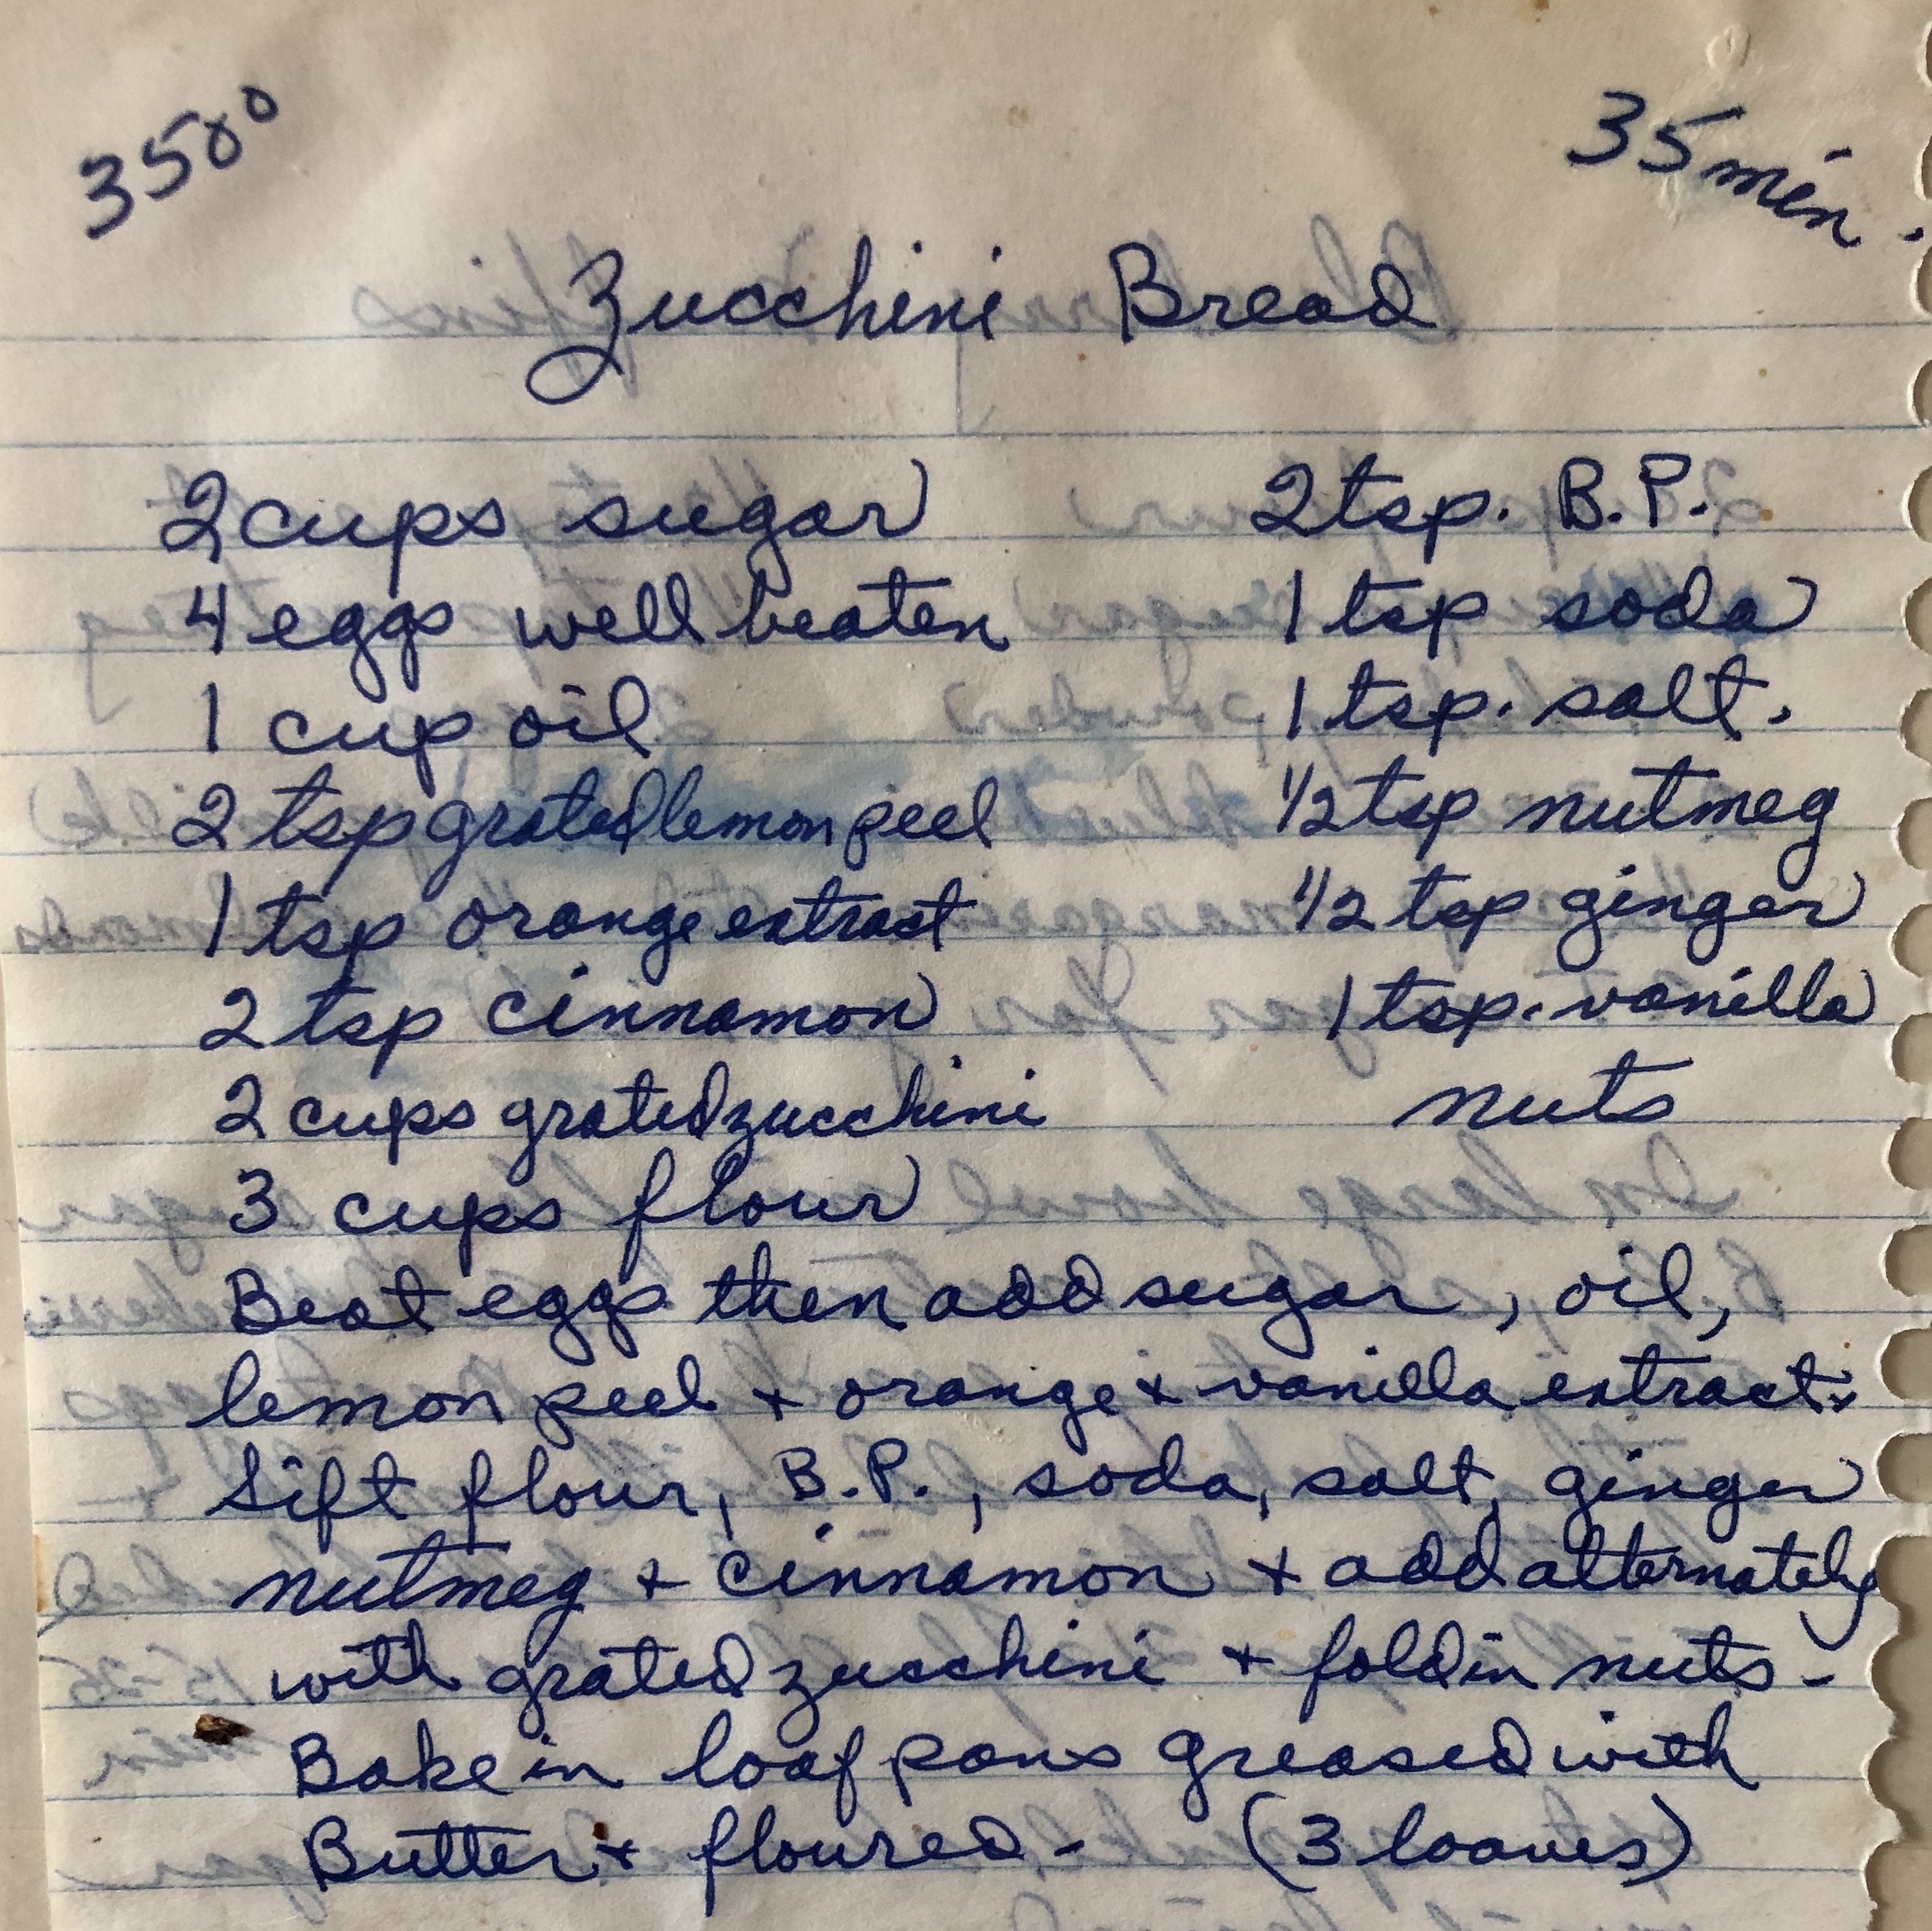 350°
35 min.
Zucchini Bread
2 cups sugar
4 eggs well beaten
1 cup oil
2 tsp grated lemon peel
1 tsp orange extract
2 tsp cinnamon
2 cups grated zucchini
3 cups flour
2 tsp. B.P.
1 tsp soda
1 tsp. salt.
1/2 tsp nutmeg
1/2 tsp ginger
1 tsp. vanilla
nuts
Beat eggs then add sugar, oil,
lemon peel + orange + vanilla extracts
Sift flour, B.P., soda, salt, ginger
nutmeg + cinnamon + add alternately
with grated zucchini + fold in nuts -
Bake in loaf pans greased with
Butter + floured - (3 loaves)